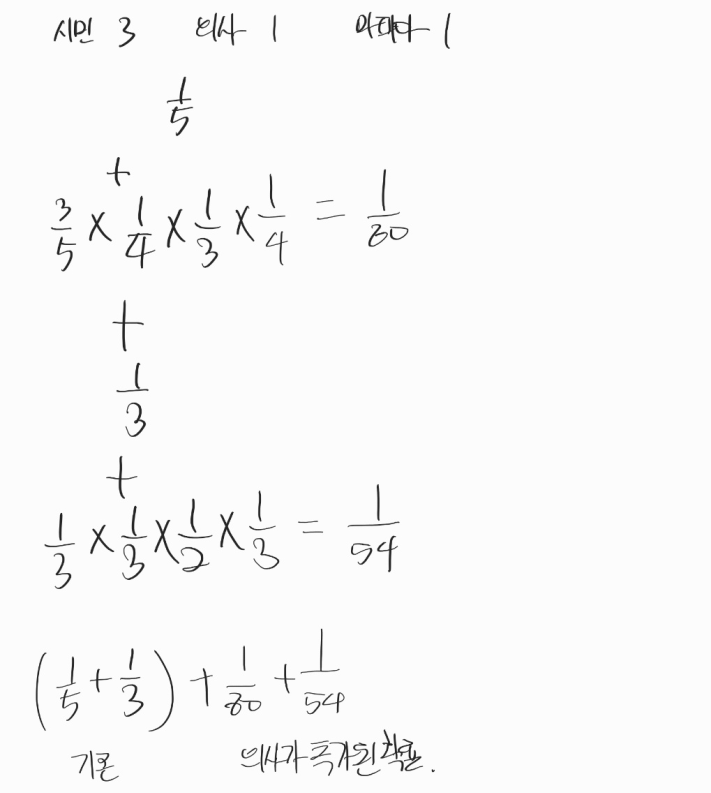 시민 3 의사 1 마피아 1
1/5
+
3/5 × 1/4 × 1/3 × 1/4 = 1/80
+
1/3
+
1/3 × 1/3 × 1/2 × 1/3 = 1/54
(1/5 + 1/3) + 1/80 + 1/54
기존 의사가 추가된 확률.